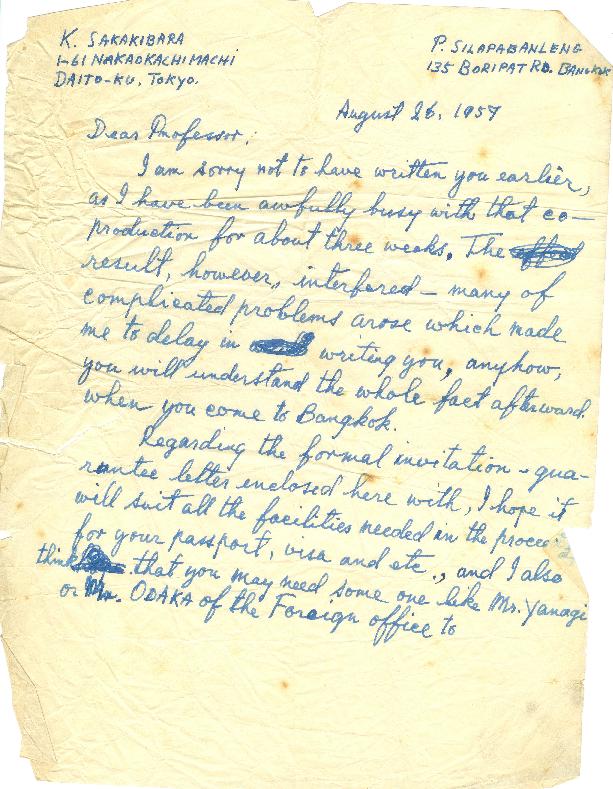 K. SAKAKIBARA
1-61 NAKAOKACHIMACHI
DAITO-KU, TOKYO.
P. SILAPABANLENG
135 BORIPAT RD. BANGKOK
August 26, 1957
Dear Professor,:
I am sorry not to have written you earlier,
as I have been awfully busy with that co-
production for about three weeks. The
result, however, interfered - many of
complicated problems arose which made
me to delay in writing you, anyhow,
you will understand the whole fact afterward
when you come to Bangkok.
Regarding the formal invitation - gua-
rantee letter enclosed here with, I hope it
will suit all the facilities needed in the
for your passport, visa and etc., and I also
think that you may need some one like Mr. Yanagi
or Mr. ODAKA of the Foreign office to